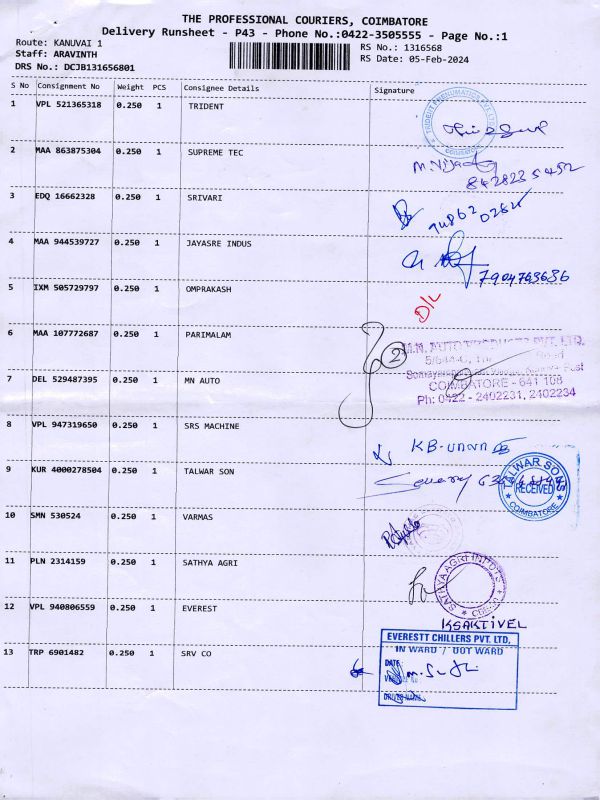 THE PROFESSIONAL COURIERS, COIMBATORE
Delivery Runsheet - P43 - Phone No.:0422-3505555 - Page No.:1
Route: KANUVAI 1 RS No.: 1316568
Staff: ARAVINTH RS Date: 05-Feb-2024
DRS No.: DCJB131656801
S No Consignment No Weight PCS Consignee Details Signature
1 VPL 521365318 0.250 1 TRIDENT
2 MAA 863875304 0.250 1 SUPREME TEC
3 EDQ 16662328 0.250 1 SRIVARI
4 MAA 944539727 0.250 1 JAYASRE INDUS
7904763636
5 IXM 505729797 0.250 1 OMPRAKASH D/L
6 MAA 107772687 0.250 1 PARIMALAM
2 M.N. AUTO PRODUCTS PVT. LTD.
7 DEL 529487395 0.250 1 MN AUTO
COIMBATORE - 641 108
Ph: 0422 - 2402231, 2402234
8 VPL 947319650 0.250 1 SRS MACHINE
9 KUR 4000278504 0.250 1 TALWAR SON TALWAR SONS RECEIVED COIMBATORE
10 SMN 530524 0.250 1 VARMAS
11 PLN 2314159 0.250 1 SATHYA AGRI SATHYA AGRI INPUTS
12 VPL 940806559 0.250 1 EVEREST
KSAKTIVEL
EVERESTT CHILLERS PVT. LTD,
IN WARD / OUT WARD
13 TRP 6901482 0.250 1 SRV CO DATE